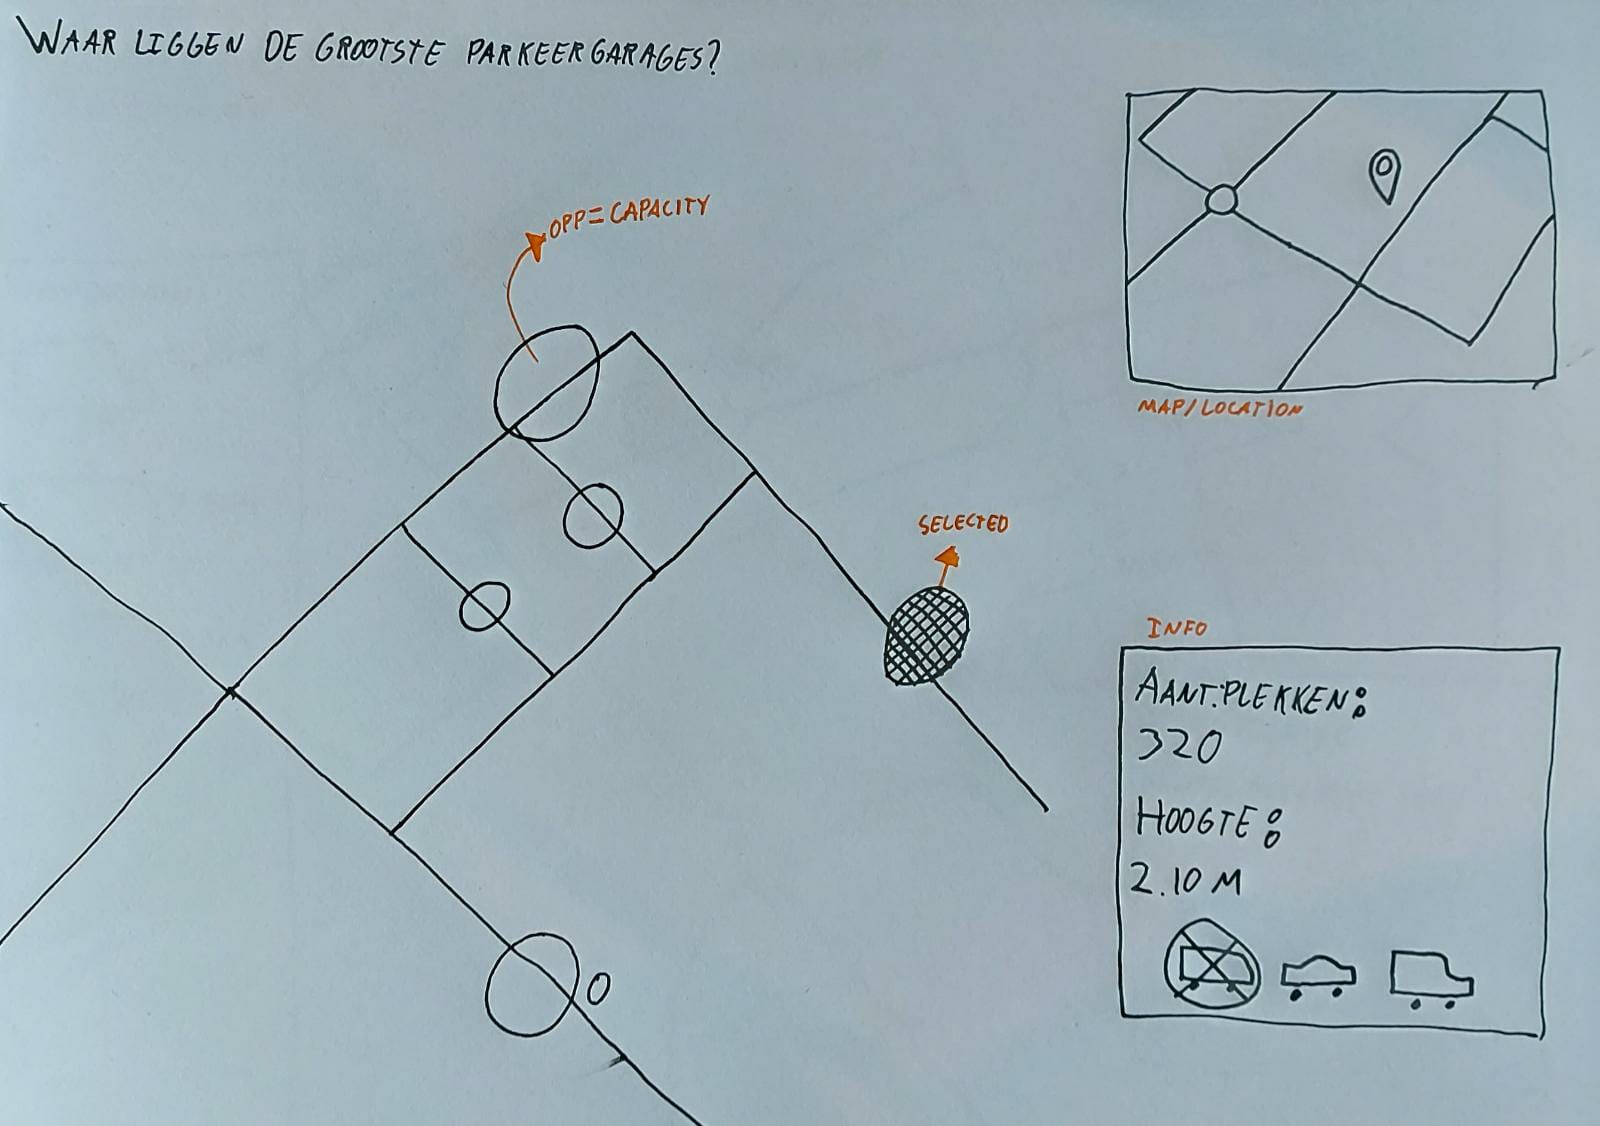 WAAR LIGGEN DE GROOTSTE PARKEERGARAGES?
OPP=CAPACITY
MAP/LOCATION
SELECTED
INFO
AANT.PLEKKEN:
320
HOOGTE:
2.10 M